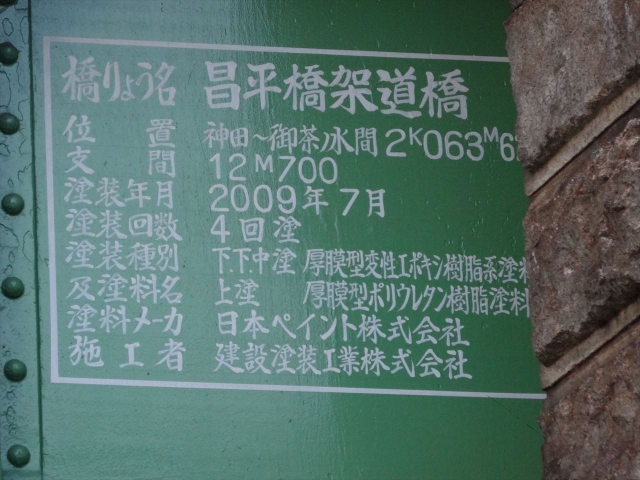 橋りょう名 昌平橋架道橋
位置 神田～御茶ノ水間 2K063M6
支間 12M700
塗装年月 2009年7月
塗装回数 4回塗
塗装種別 下.下.中塗 厚膜型変性エポキシ樹脂系塗料
及塗料名 上塗 厚膜型ポリウレタン樹脂塗料
塗料メーカ 日本ペイント株式会社
施工者 建設塗装工業株式会社